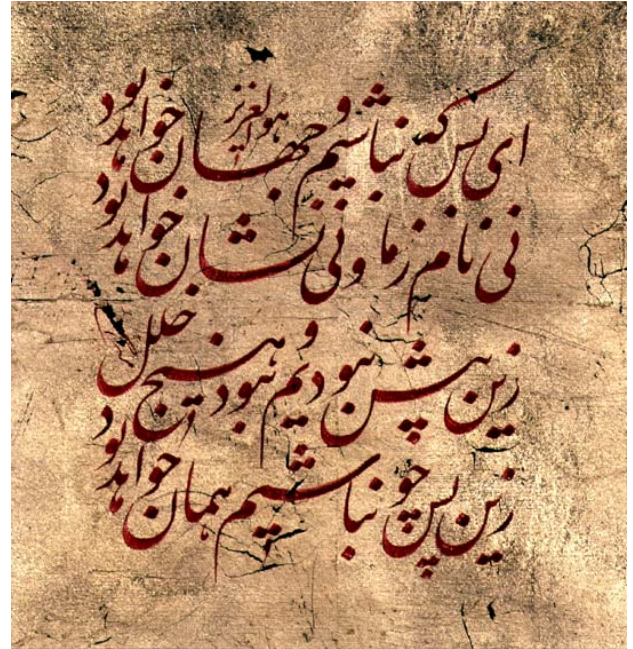 هوالعزیز
ای بس که نباشیم و جهان خواهد بود
نی نام زما و نی نشان خواهد بود
زین پیش نبودیم و نبود هیچ خلل
زین پس چو نباشیم همان خواهد بود